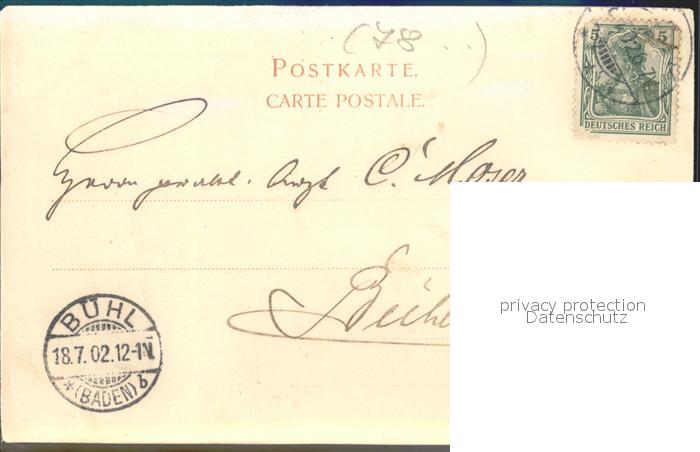 (78 . . )
POSTKARTE.
CARTE POSTALE.
5 5
DEUTSCHES REICH
Herrn prakt. Arzt C. Moser
Bühl
BÜHL
18.7.02.12-1N.
*(BADEN) b
privacy protection
Datenschutz